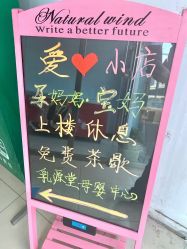 Natural wind
Write a better future
爱❤小店
孕妈妈 宝妈
上楼休息
免费茶歇
乳源堂母婴中心